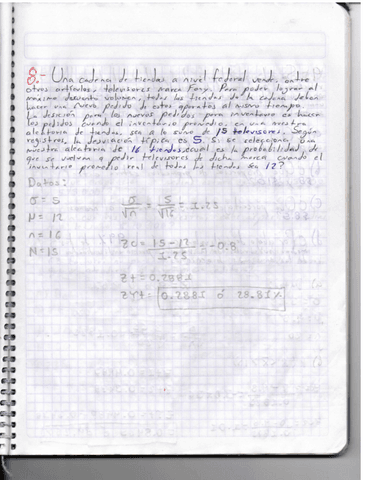 8.- Una cadena de tiendas a nivel federal vende, entre
otros artículos, televisores marca Fony. Para poder lograr el
máximo descuento volumen, todas las tiendas de la cadena deben
hacer un nuevo pedido de estos aparatos al mismo tiempo.
La desición para los nuevos pedidos para inventario es hacer
los pedidos cuando el inventario promedio, en una muestra
aleatoria de tiendas, sea a lo sumo de 15 televisores. Según
registros, la desviación típica es 5. Si se selecciona una
muestra aleatoria de 16 tiendas, cual es la probabilidad, de
que se vuelvan a pedir televisores de dicha marca cuando el
inventario promedio real de todas las tiendas sea 12?
Datos:
σ = 5
μ = 12
n = 16
N = 15
σ/√n = 5/√16 = 1.25
Zc = 15 - 12 / 1.25 = -0.8
Zt = 0.2881
ZYt = 0.2881 ó 28.81%